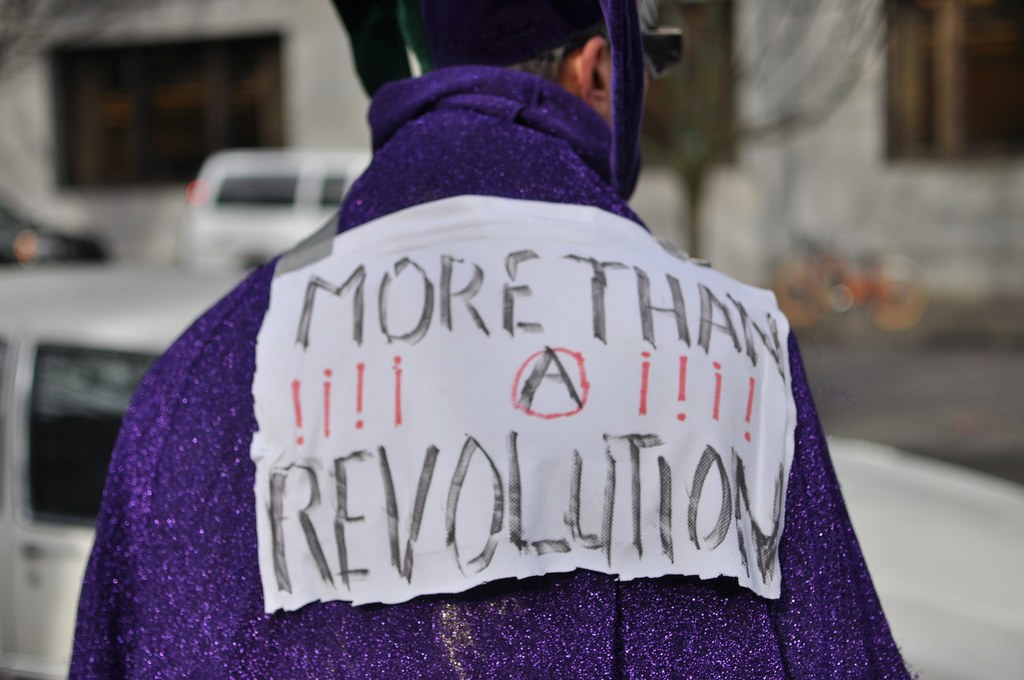 MORE THAN
!¡!¡ A ¡!¡!
REVOLUTION